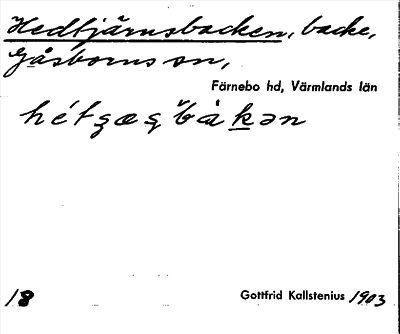 Hedtjärnsbacken, backe,
Gåsborns sn,
Färnebo hd, Värmlands län
18
Gottfrid Kallstenius 1903